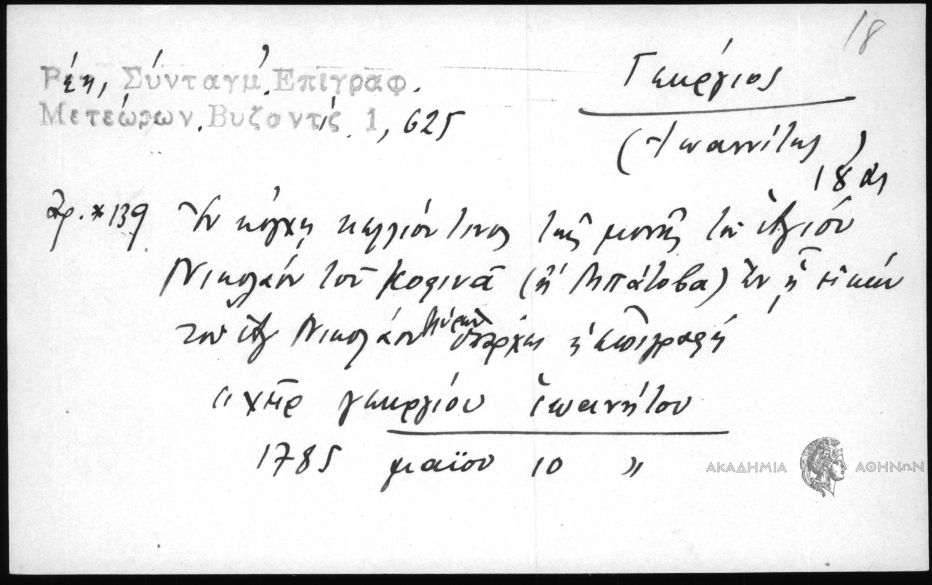 18
Βέη, Σύνταγμ. Ἐπιγραφ.
Μετεώρων. Βυζαντίς 1, 625
Γεώργιος
(Ἰωαννίτης)
18 αι
ἀρ. * 139 Ἐν κόγχῃ κελλίου τινος τῆς μονῆς τοῦ Ἁγίου
Νικολάου τοῦ Κοφινᾶ (ἢ Μπάτοβα) ἐν ᾗ εἰκὼν
του Ἁγ Νικολάου ὑπάρχει ἡ ἐπιγραφή
"χεὶρ γεωργίου ἰωαννήτου
1785 μαΐου 10 "
ΑΚΑΔΗΜΙΑ ΑΘΗΝΩΝ